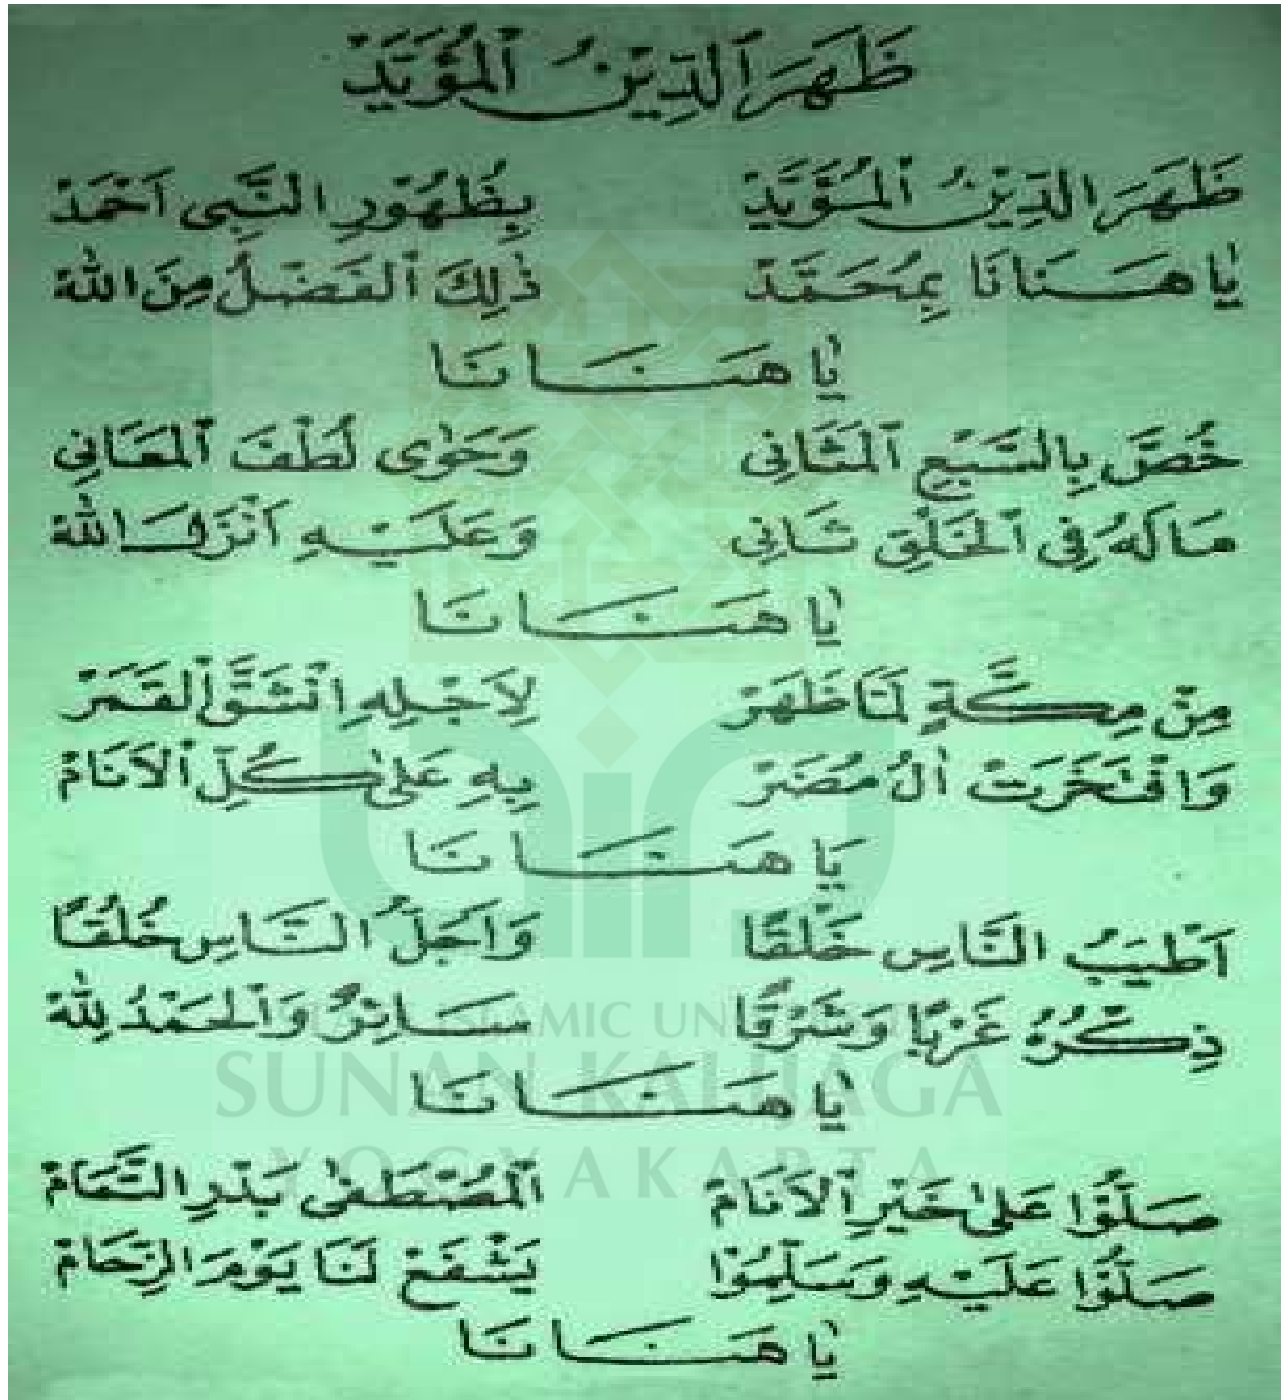 ظَهَرَ ٱلدِّيْنُ ٱلْمُؤَيَّدْ
ظَهَرَ الدِّيْنُ ٱلْمُؤَيَّدْ بِظُهُوْرِ النَّبِى اَحْمَدْ
يٰا هَنَانَا بِمُحَمَّدْ ذٰلِكَ ٱلْفَضْلُ مِنَ اللّٰهْ
يٰا هَنَانَا
خُصَّ بِالسَّبْعِ ٱلْمَثَانِى وَحَوٰى لُطْفَ ٱلْمَعَانِى
مَالَهُ فِى ٱلْخَلْقِ ثَانِى وَعَلَيْهِ اَنْزَلَ اللّٰهْ
يٰا هَنَانَا
مِنْ مِكَّةٍ لَمَّا ظَهَرْ لِاَجْلِهِ اِنْشَقَّ ٱلْقَمَرْ
وَافْتَخَرَتْ اٰلُ مُضَرْ بِهِ عَلٰى كُلِّ ٱلْاَنَامْ
يَا هَنَانَا
اَطْيَبُ النَّاسِ خَلْقًا وَاَجَلُّ النَّاسِ خُلُقًا
ذِكْرُهُ غَرْبًا وَشَرْقًا سَائِرٌ وَٱلْحَمْدُ لِلّٰهْ
يٰا هَنَانَا
صَلُّوْا عَلٰى خَيْرِ ٱلْاَنَامْ ٱلْمُصْطَفٰى بَدْرِ التَّمَامْ
صَلُّوْا عَلَيْهِ وَسَلِّمُوْا يَشْفَعْ لَنَا يَوْمَ الزِّحَامْ
يٰا هَنَانَا
SUNAN KALIJAGA
YOGYAKARTA